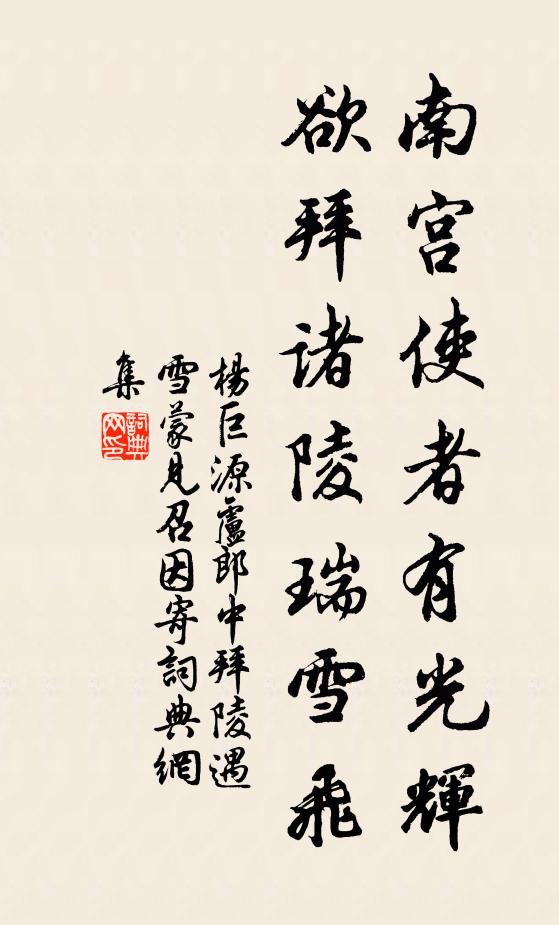 南宫使者有光輝
欲拜諸陵瑞雪飛
楊巨源盧郎中拜陵遇
雪蒙見召因寄詞典網
集
詞典
网印